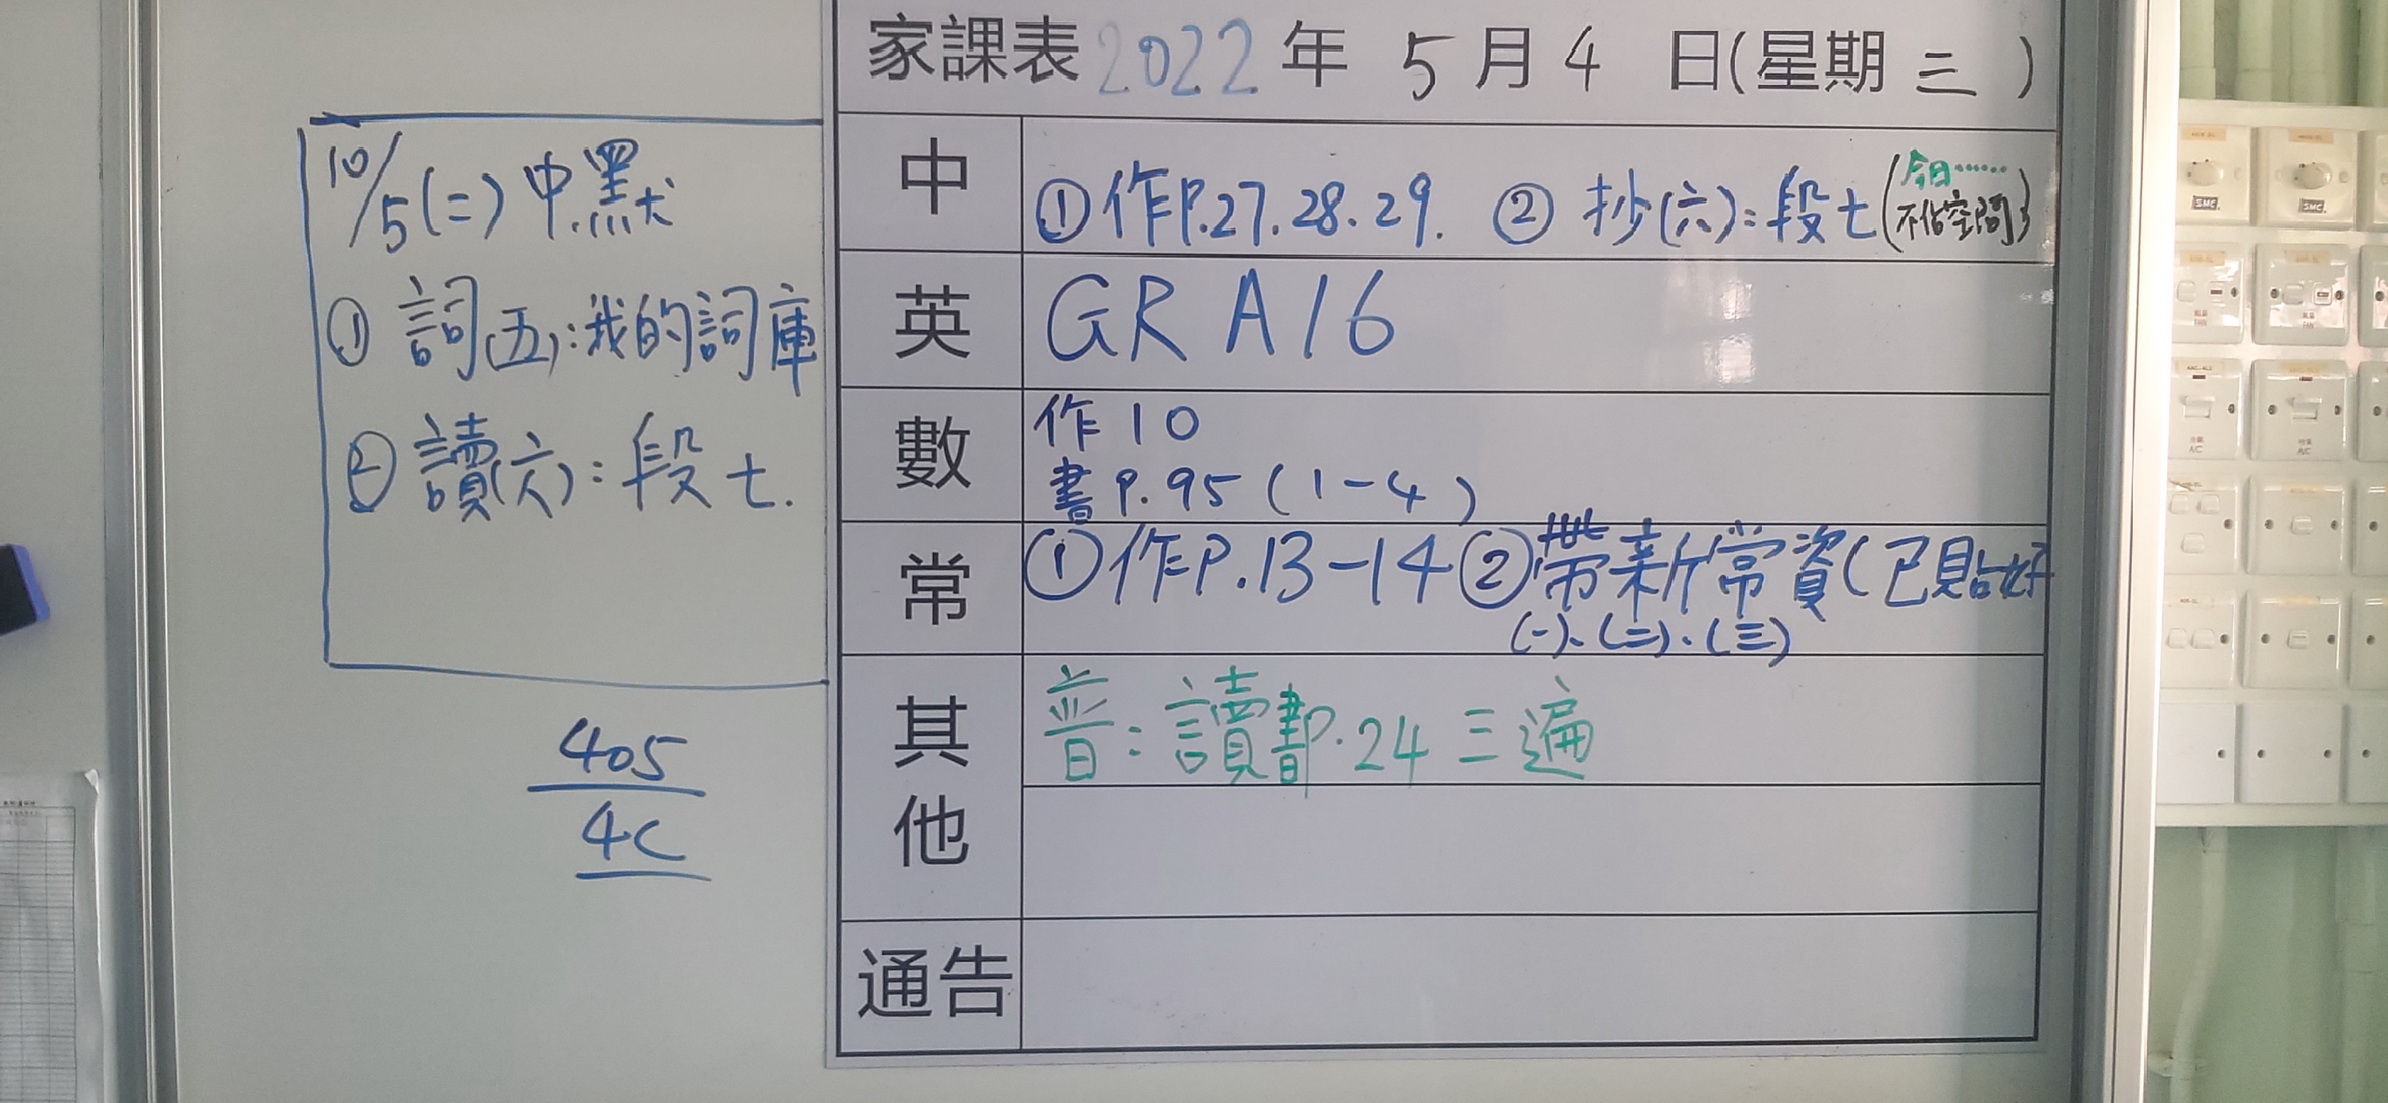 家課表 2022 年 5 月 4 日(星期 三 )
10/5(二) 中.默
① 詞(五):我的詞庫
② 讀(六):段七.
405
4C
中
①作P.27.28.29. ② 抄(六):段七(今日……不佔空間)
英
GR A16
數
作10
書P.95(1-4)
常
①作P.13-14②帶新常資(已貼好
(一)、(二)、(三)
其他
普:讀書P.24三遍
通告